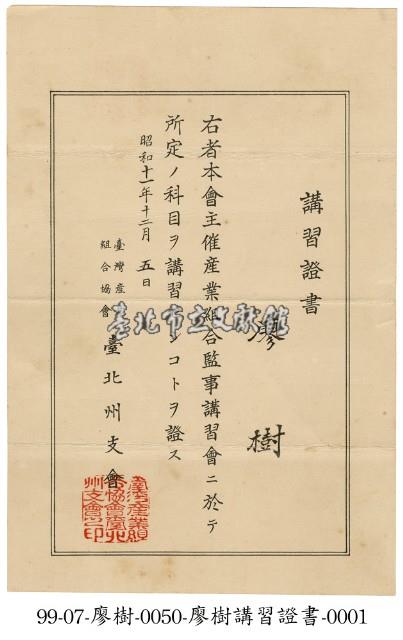 講習證書
廖樹
右者本會主催産業組合監事講習會ニ於テ
所定ノ科目ヲ講習
コトヲ證ス
昭和十一年十二月五日
臺灣産業
組合協會
臺北州支會
臺灣産業組
合協會臺北
州支會之印
臺北市立文獻館
99-07-廖樹-0050-廖樹講習證書-0001